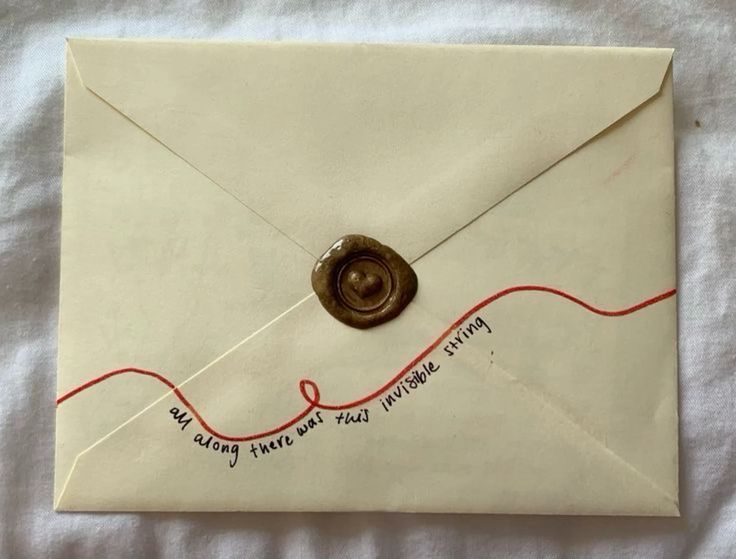 all along there was this invisible string